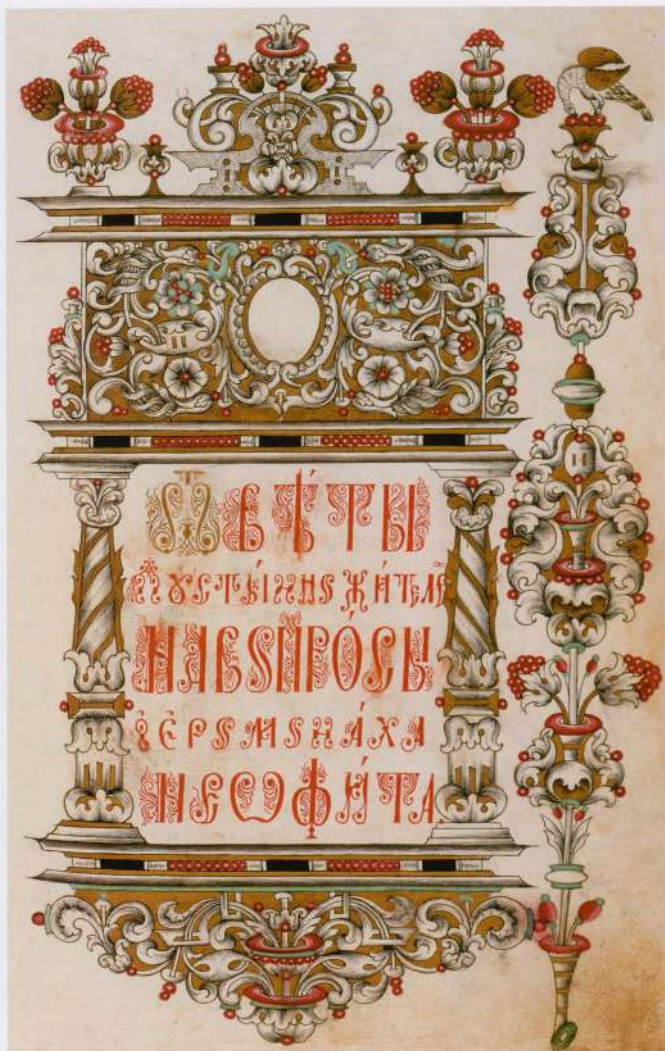 Ѿвѣ́ты
пꙋсты́нножи́телей
навопро́сы
іеромона́ха
неѡфи́та